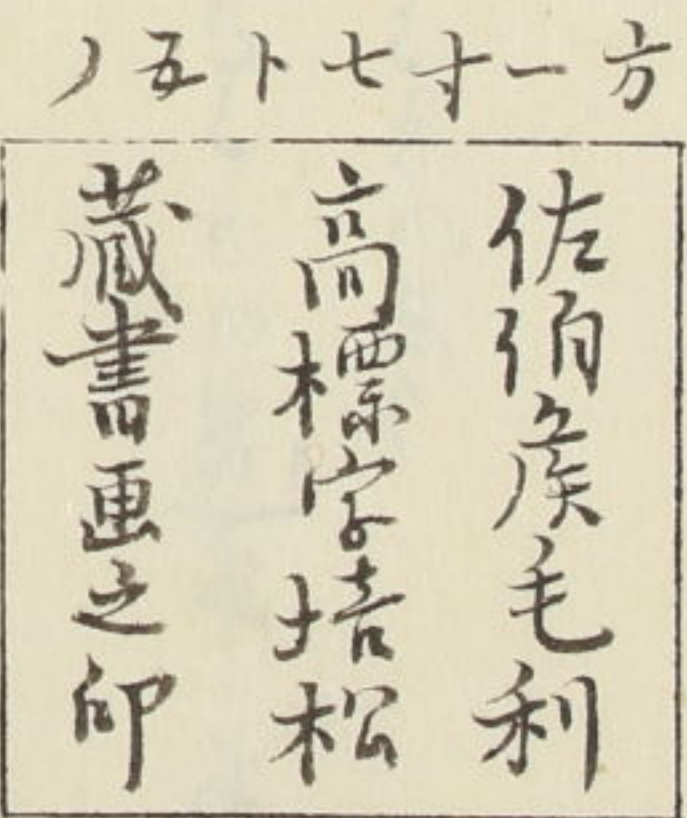 方一寸七卜五ノ
佐伯矦毛利
高標字培松
蔵書画之印